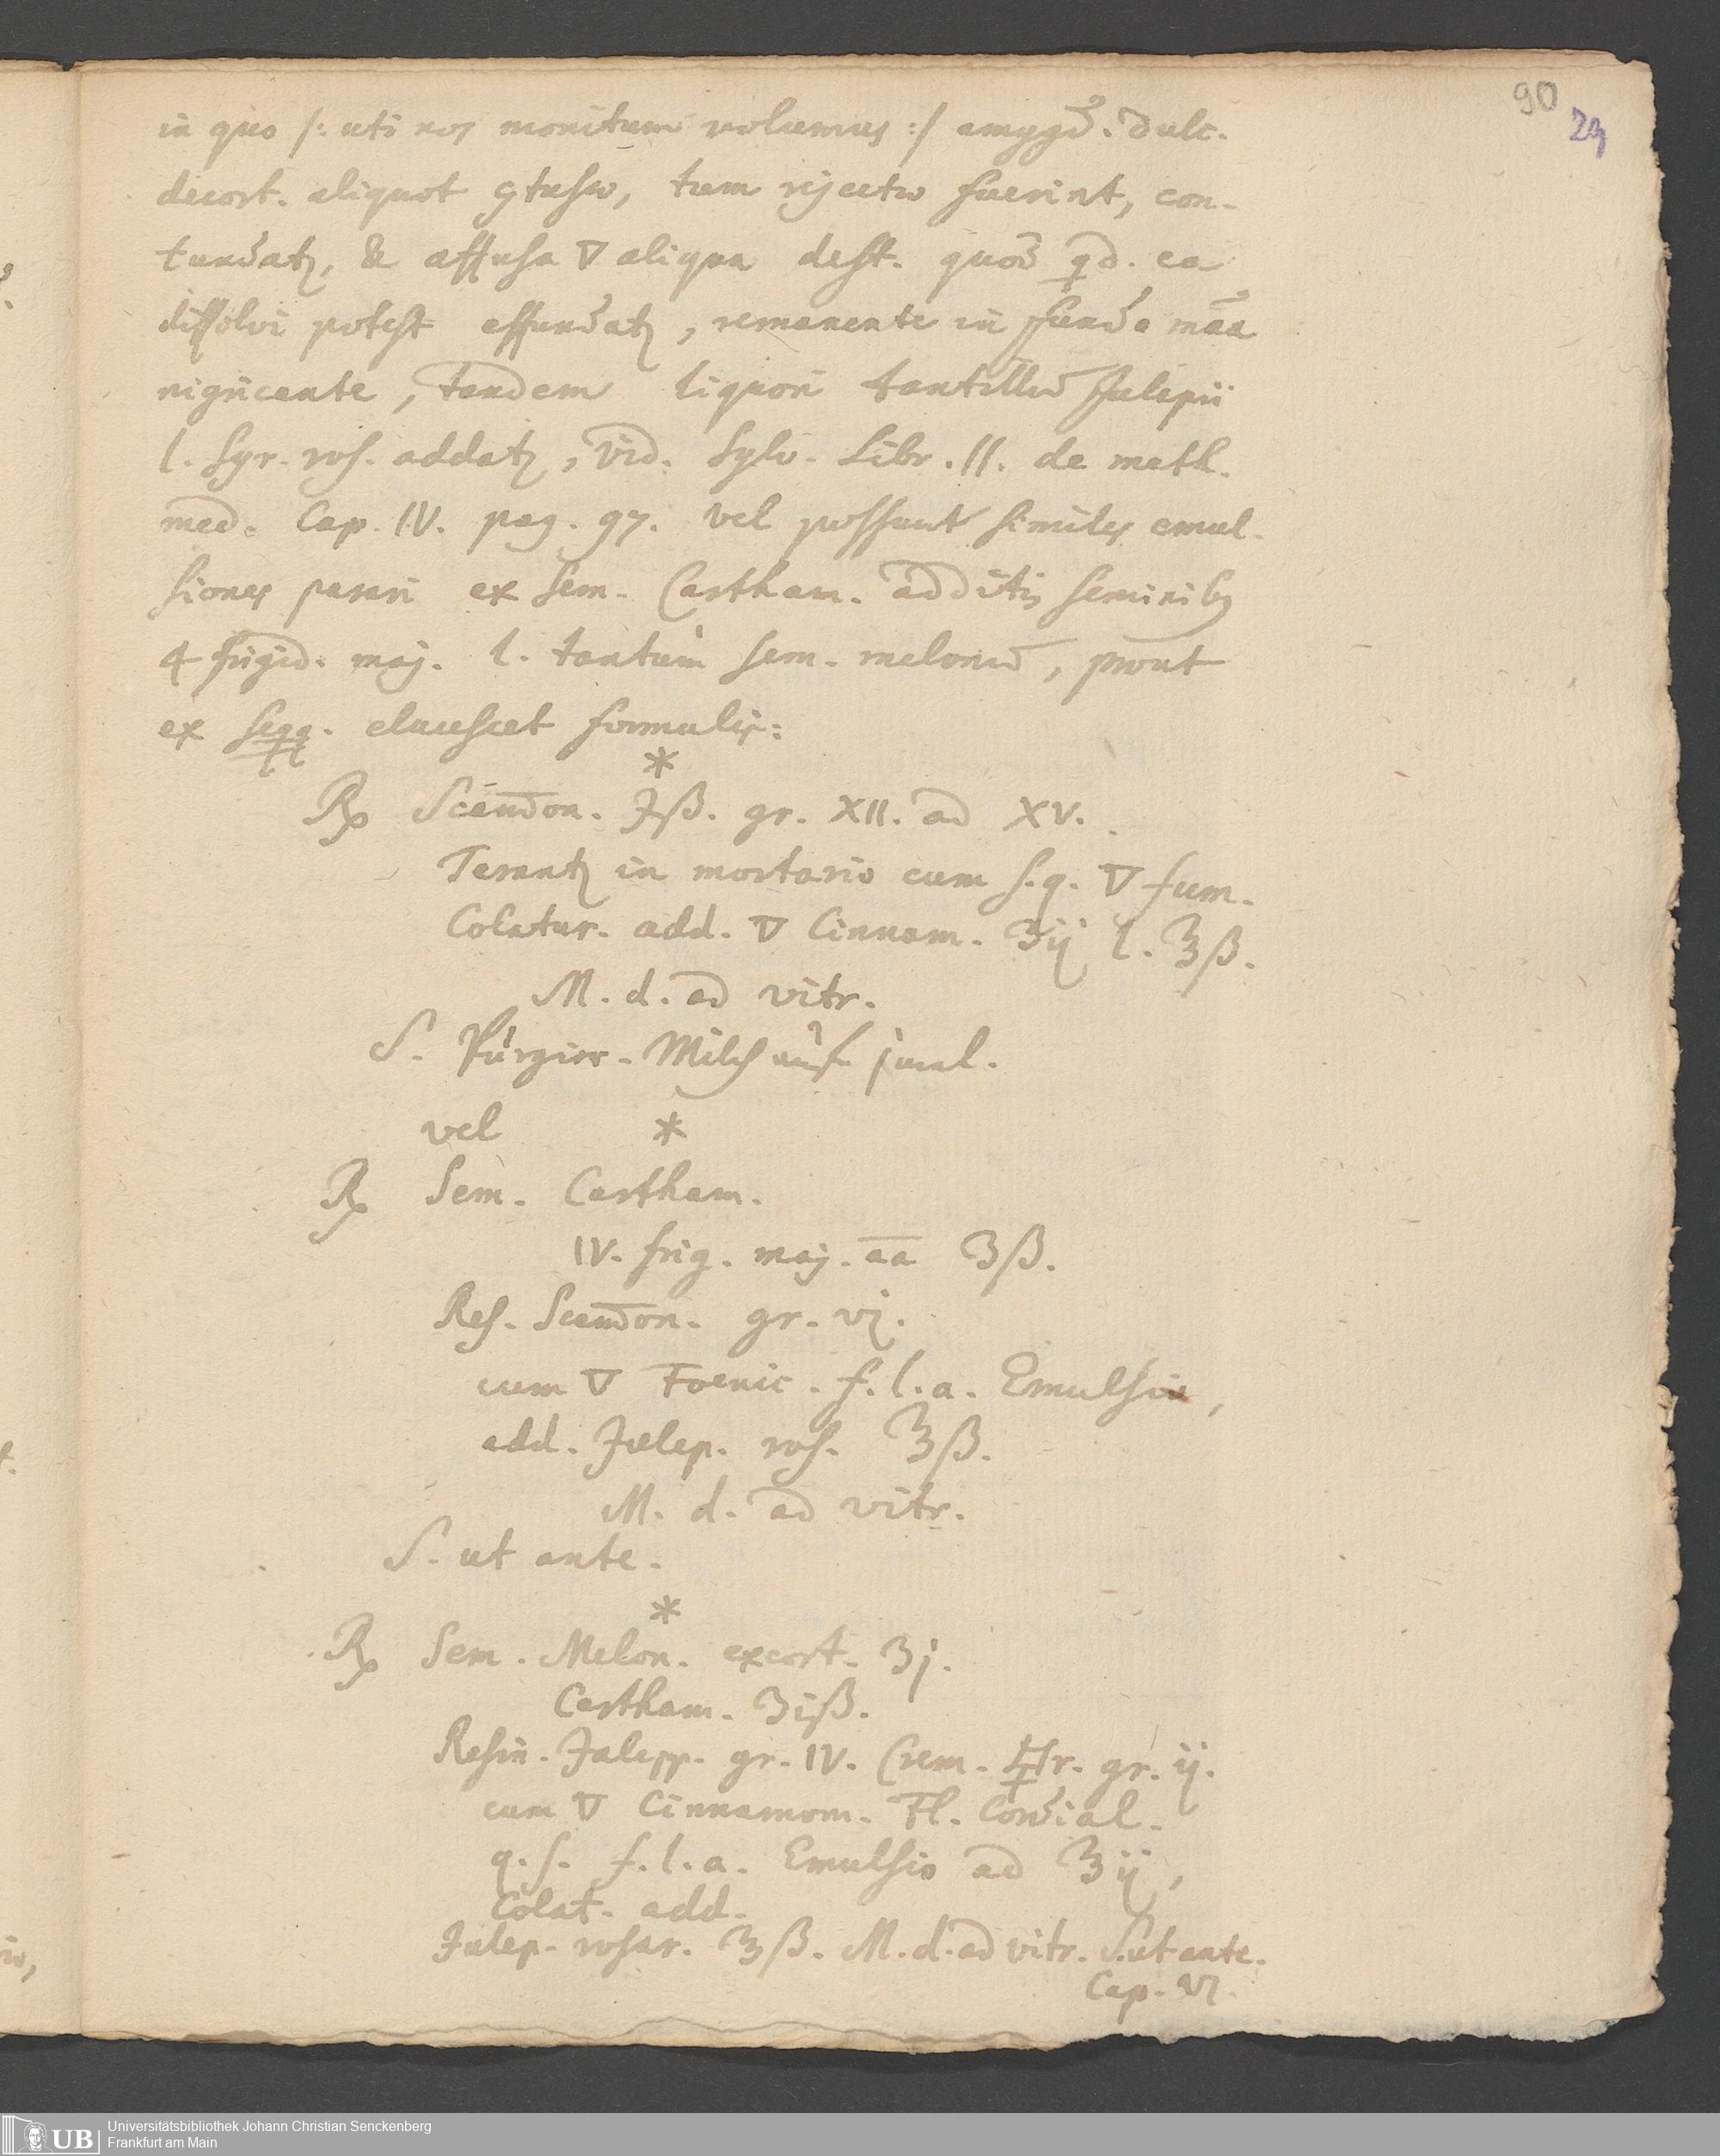 90
29
in quo /: uti nos monitum volumus :/ amygd. dulc.
decort. aliquot ꝯtusæ, tum rejectæ fuerint, con-
tundatꝫ, & affusa ▽ aliqua dest. quod qd. ea
dissolvi potest effundatꝫ, remanente in fundo mãa
nigricante, tandem liquori tantillũ Julepii
l. Syr. ros. addatꝫ, vid. Sylv. Libr. II. de meth.
med. Cap. IV. pag. 97. vel possunt similes emul-
siones parari ex sem. Cartham. additis seminibꝫ
4 frigid. maj. l. tantùm sem. melonũ, prout
ex seqq. elucescet formulis:
*
℞ Scam̄on. ℈ß. gr. XII. ad XV.
Terantꝫ in mortario cum s. q. ▽ fum.
Colatur. add. ▽ Cinnam. ʒij l. ℥ß.
M. d. ad vitr.
S. Purgier-Milch auf j mal.
vel *
℞ Sem. Cartham.
IV. frig. maj. a̅a̅ ʒß.
Res. Scam̄on. gr. vj.
cum ▽ Foenic. f. l. a. Emulsio,
add. Julep. ros. ℥ß.
M. d. ad vitr.
S. ut ante.
*
℞ Sem. Melon. excort. ʒj.
Cartham. ʒiß.
Resin. Jalapp. gr. IV. Crem. ⯗r. gr. ij.
cum ▽ Cinnamom. Fl. Cordial.
q. s. f. l. a. Emulsio ad ℥ij,
Colat. add.
Julep. rosar. ℥ß. M. d. ad vitr. S. ut ante.
Cap. VI.
UB Universitätsbibliothek Johann Christian Senckenberg
Frankfurt am Main